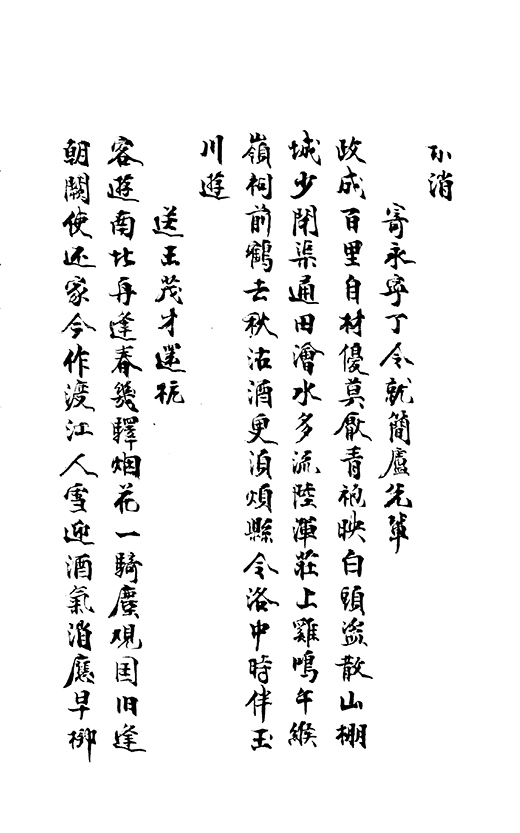 不消
寄永寧丁令就簡盧先輩
政成百里自材優莫厭青袍映白頭盜散山棚
城少閉渠通田澮水多流陸渾莊上雞鳴午緱
嶺祠前鶴去秋沽酒更須煩縣令洛中時伴玉
川遊
送王茂才還杭
客遊南北再逢春幾驛烟花一騎塵觀国旧逢
朝闕使还家今作渡江人雪迎酒氣消應早柳